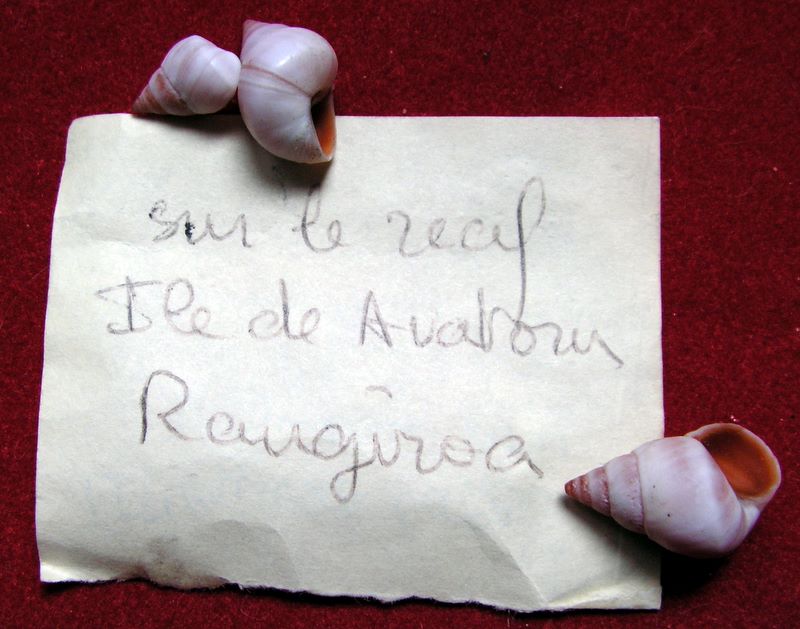 sur le recif
Ile de Avatoru
Rangiroa